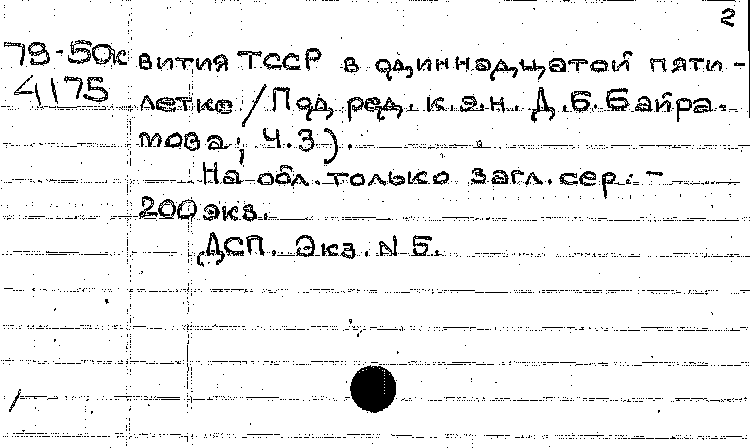 2
79-50к вития ТССР в одиннадцатой пяти-
4175 летке / Под ред. к.э.н. Д.Б.Байра-
мова; Ч.3).
На обл. только загл. сер. -
200 экз.
ДСП. Экз. N 5.